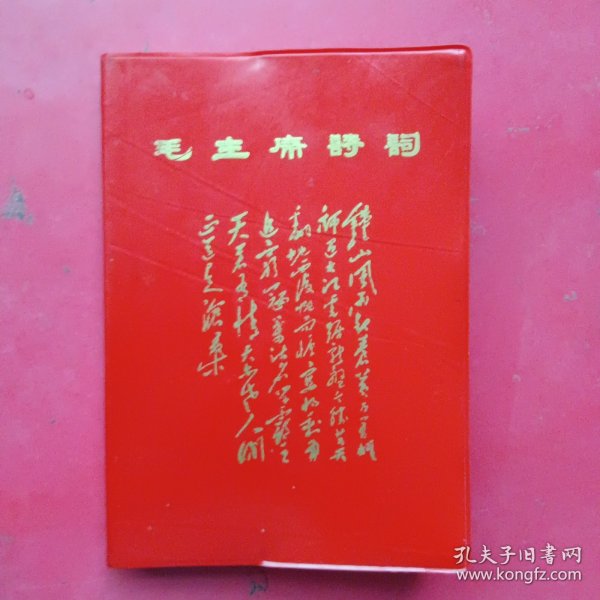 毛主席詩詞
鍾山風雨起蒼黄百万雄
師過大江虎踞龍盤今勝昔天
翻地覆慨而慷宜將剩勇
追窮寇不可沽名學霸王
天若有情天亦老人間
正道是滄桑
孔夫子旧书网
www.kongfz.com